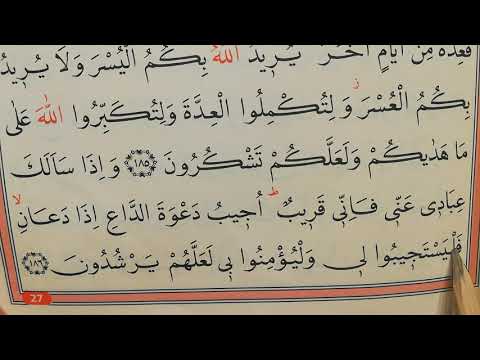 فَعِدَّةٌ مِنْ اَيَّامٍ اُخَرَ يُرٖيدُ اللّٰهُ بِكُمُ الْيُسْرَ وَلَا يُرٖيدُ
بِكُمُ الْعُسْرَ وَلِتُكْمِلُوا الْعِدَّةَ وَلِتُكَبِّرُوا اللّٰهَ عَلٰى
مَا هَدٰيكُمْ وَلَعَلَّكُمْ تَشْكُرُونَ ١٨٥ وَاِذَا سَاَلَكَ
عِبَادٖى عَنّٖى فَاِنّٖى قَرٖيبٌ ط اُجٖيبُ دَعْوَةَ الدَّاعِ اِذَا دَعَانِ لا
فَلْيَسْتَجٖيبُوا لٖى وَلْيُؤْمِنُوا بٖى لَعَلَّهُمْ يَرْشُدُونَ ١٨٦
27